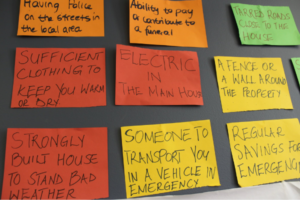 Having Police
on the streets in
the local area
Ability to pay
or contribute to
a funeral
TARRED ROADS
CLOSE TO THE
HOUSE
SUFFICIENT
CLOTHING TO
KEEP YOU WARM
OR DRY
ELECTRIC
IN
THE MAIN HOUS
A FENCE OR
A WALL AROUND
THE PROPERTY
STRONGLY
BUILT HOUSE
TO STAND BAD
WEATHER
SOMEONE TO
TRANSPORT YOU
IN A VEHICLE IN
EMERGENCY
REGULAR
SAVINGS FOR
EMERGENC